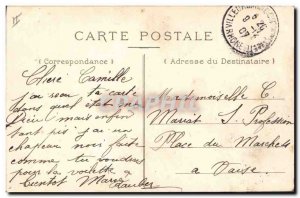 CARTE POSTALE
(Correspondance)
Adresse du Destinataire
Chère Camille
j'ai reçu ta carte
dans quel état mon
Dieu mais enfin
tant pis j'ai un
chapeau noir faite
comme tu voudras
pour la voilette à
bientôt Marie
Mademoiselle C
Mariat S. Profession
Place du Marché
à Vaise.